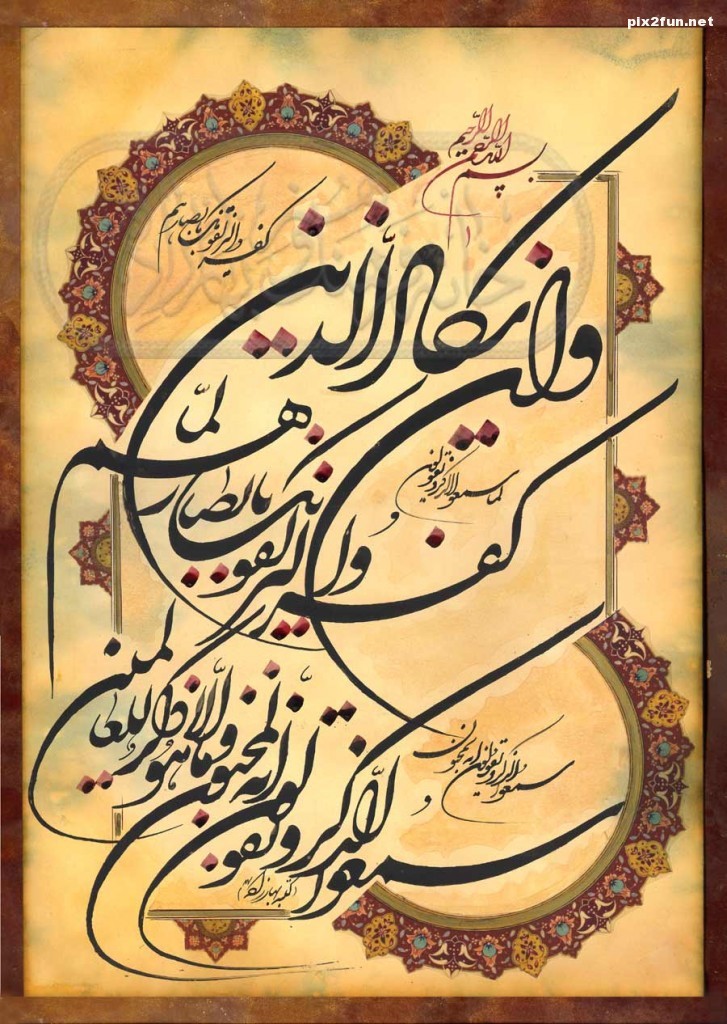 pix2fun.net
بسم الله الرحمن الرحیم
وان یکاد الذین
کفروا لیزلقونک بابصارهم لما
سمعوا الذکر ویقولون انه لمجنون وما هو الا ذکر للعالمین